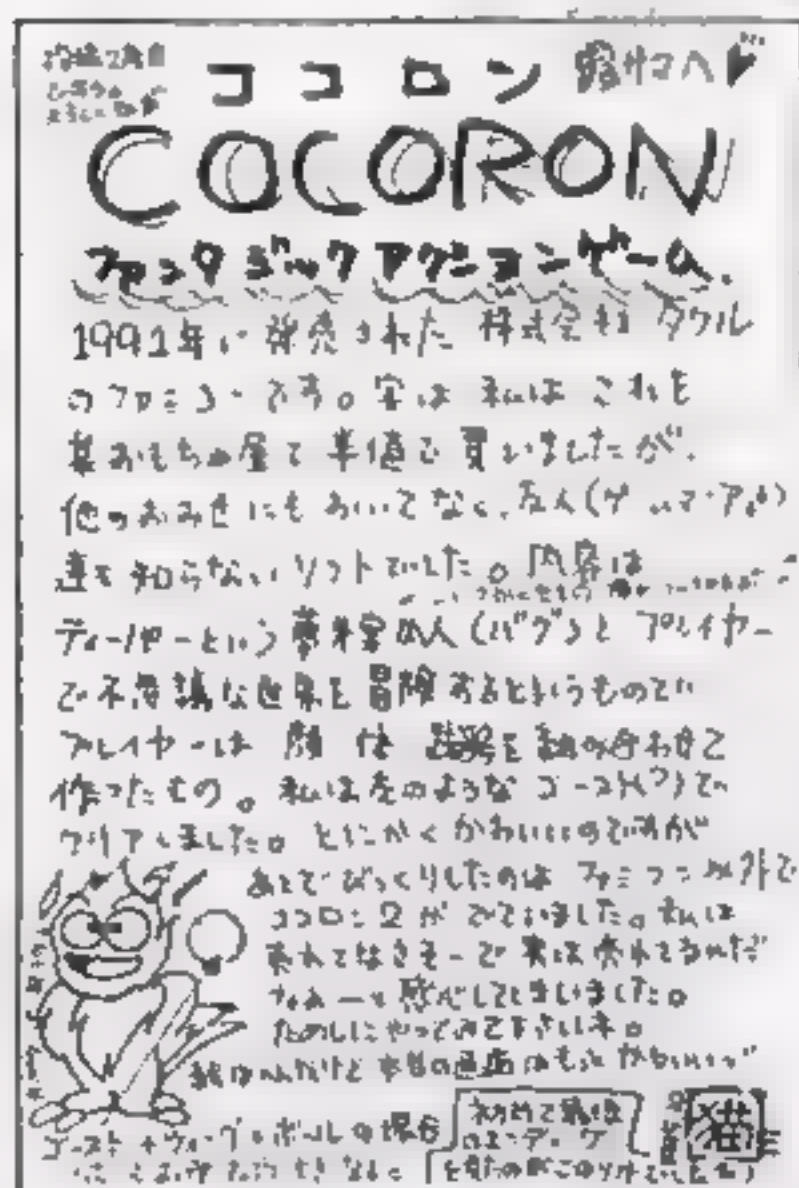 投稿2度目
ココロン
COCORON
ファンタジックアクションゲーム.
1991年に発売された 株式会社 タケル
のファミコンです。実は 私は これを
某おもちゃ屋で 半値で 買いましたが、
他のおみせにも おいてなく、友人(ゲームマニア)
達も知らないソフトでした。内容は
ティーパーという夢先案内人(バク)と プレイヤー
で不思議な世界を冒険するというもので
プレイヤーは 顔 体 武器を組み合わせて
作ったもの。私は左のような ゴースト(?)で
クリアしました。とにかくかわいいのですが
あとで びっくりしたのは ファミコン以外で
ココロン2が でていました。私は
売れてなさそーで 実は売れてるんだ
なぁーと感心してしまいました。
ためしにやってみて下さいネ。
本物の画面はもっと かわいい
ゴースト+ウィング+ボールの場合
初めて最後
のエンディング
を見たのがこのソフトでした